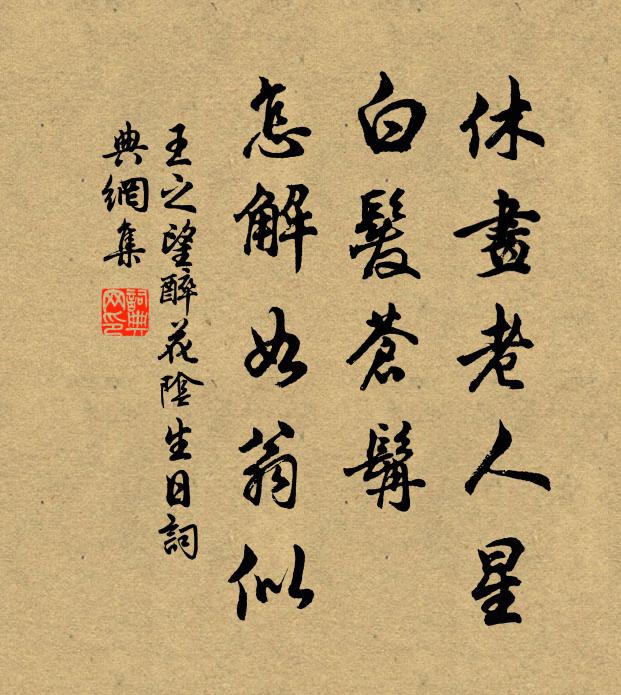 休畫老人星
白髮蒼髯
怎解如翁似
王之望醉花陰生日詞
典網集
詞典網印